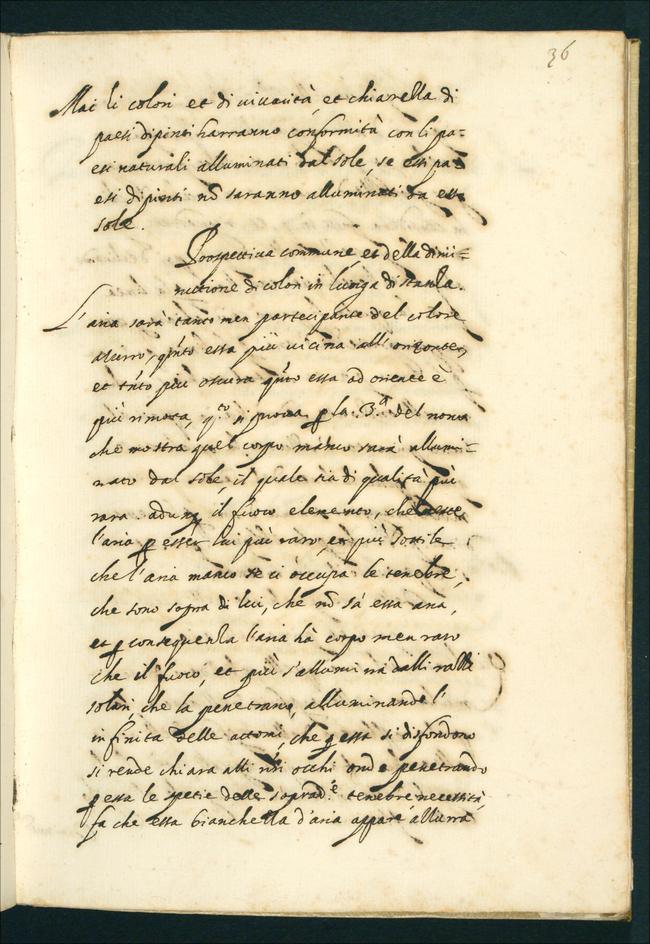 36
Mai li colori et di vivacità, et chiarezza di
paesi dipinti harranno conformità con li pa=
esi naturali alluminati dal sole, se essi pa=
esi dipinti nõ saranno alluminati da esso
sole.
Prospettiva commune, et della dimi=
nuttione di colori in lunga distanza.
L'aria sarà tanto men partecipante del colore
azurro, q̃nto essa più vicina all'orizonte,
et tñto più oscura q̃nto essa ad oriente è
più rimota, q.to si prova ꝑ la 3.a del nono
che mostra quel corpo manco sarà allumi=
nato dal sole, il quale sia di qualità più
rara. adunq il fuoco elemento, che veste
l'aria ꝑ esser lui più raro, et più sottile
che l'aria manco se ci occupa le tenebre,
che sono sopra di lui, che nõ fa essa aria,
et ꝑ consequenza l'aria hà corpo men raro
che il fuoco, et più s'allumina dalli razzi
solari, che la penetrano, alluminando l'
infinita delle attomi, che ꝑ essa si disfondono
si rende chiara alli nr̃i occhi onde penetrando
ꝑ essa le spetie delle soprad.e tenebre necessità
fa che essa bianchezza d'aria appare azzurra